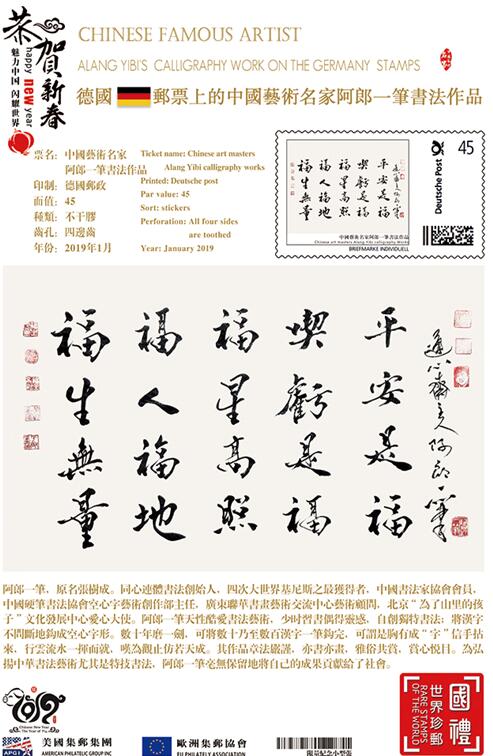 恭賀新春
happy new year
魅力中国 闪耀世界
CHINESE FAMOUS ARTIST
ALANG YIBI'S CALLIGRAPHY WORK ON THE GERMANY STAMPS
德國郵票上的中國藝術名家阿郎一筆書法作品
票名：中國藝術名家
阿郎一筆書法作品
印制：德國郵政
面值：45
種類：不干膠
齒孔：四邊齒
年份：2019年1月
Ticket name: Chinese art masters
Alang Yibi calligraphy works
Printed: Deutsche post
Par value: 45
Sort: stickers
Perforation: All four sides
are toothed
Year: January 2019
平安是福
喫虧是福
福星高照
福人福地
福生無量
中国藝術名家阿郎一筆書法作品
Chinese art masters Alang Yibi calligraphy Works
BRIEFMARKE INDIVIDUELL
Deutsche Post
45
平安是福
喫虧是福
福星高照
福人福地
福生無量
通心齋主人阿郎一筆
阿郎一筆，原名張樹成。同心連體書法創始人，四次大世界基尼斯之最獲得者，中國書法家協會會員，
中國硬筆書法協會空心字藝術創作部主任，廣東聯華書畫藝術交流中心藝術顧問，北京“為了山里的孩
子”文化發展中心愛心大使。阿郎一筆天性酷愛書法藝術，少時習書偶得靈感，自創獨特書法；將漢字
不間斷地鈎成空心字形。數十年磨一劍，可將數十乃至數百漢字一筆鈎完，可謂是胸有成“字”信手拈
來，行雲流水一揮而就，嘆為觀止仿若天成。其作品章法嚴謹，亦書亦畫，雅俗共賞，賞心悦目。為弘
揚中華書法藝術尤其是特技書法，阿郎一筆毫無保留地將自己的成果貢獻給了社會。
2019
Chinese New Year
The Year of Pig
APGI
美國集郵集團
AMERICAN PHILATELIC GROUP INC
歐洲集郵協會
EU PHILATELY ASSOCIATION
限量紀念小型張
國禮
世界珍郵
RARE STAMPS OF THE WORLD